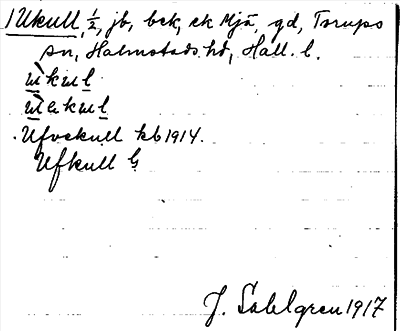 1 Ukull, ½, jb, bck, ck Mjä, gd, Torups
sn, Halmstads hd, Hall. l.
ùkul
ùekul
Ufvekull kb 1914.
Ufkull G
J. Sahlgren 1917